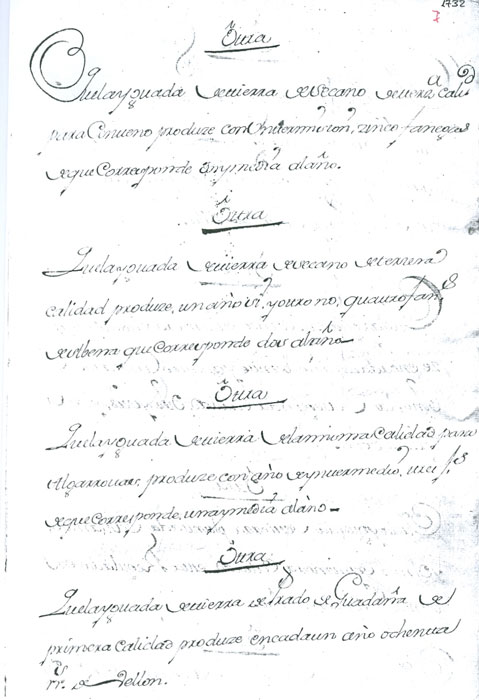 1732
7
Ytra
Que la yguada de tierra de secano de tercera calid
para Centeno produze con Yntermision, zinco fanegas
de que corresponde dos y media al año.
Ytra
Que la yguada de tierra de secano de tercera
calidad produze, un año si, y otro no, quatro fans
de abena que corresponde dos al año
Ytra
Que la yguada de tierra de la misma calidad para
Algarrouas, produze con año de yntermedio, tres fs
de que corresponde, una y media al año
Ytra
Que la yguada de tierra de Prado de Guadaña de
primera calidad produze en cada un año ochenta
rrs. de Vellon.